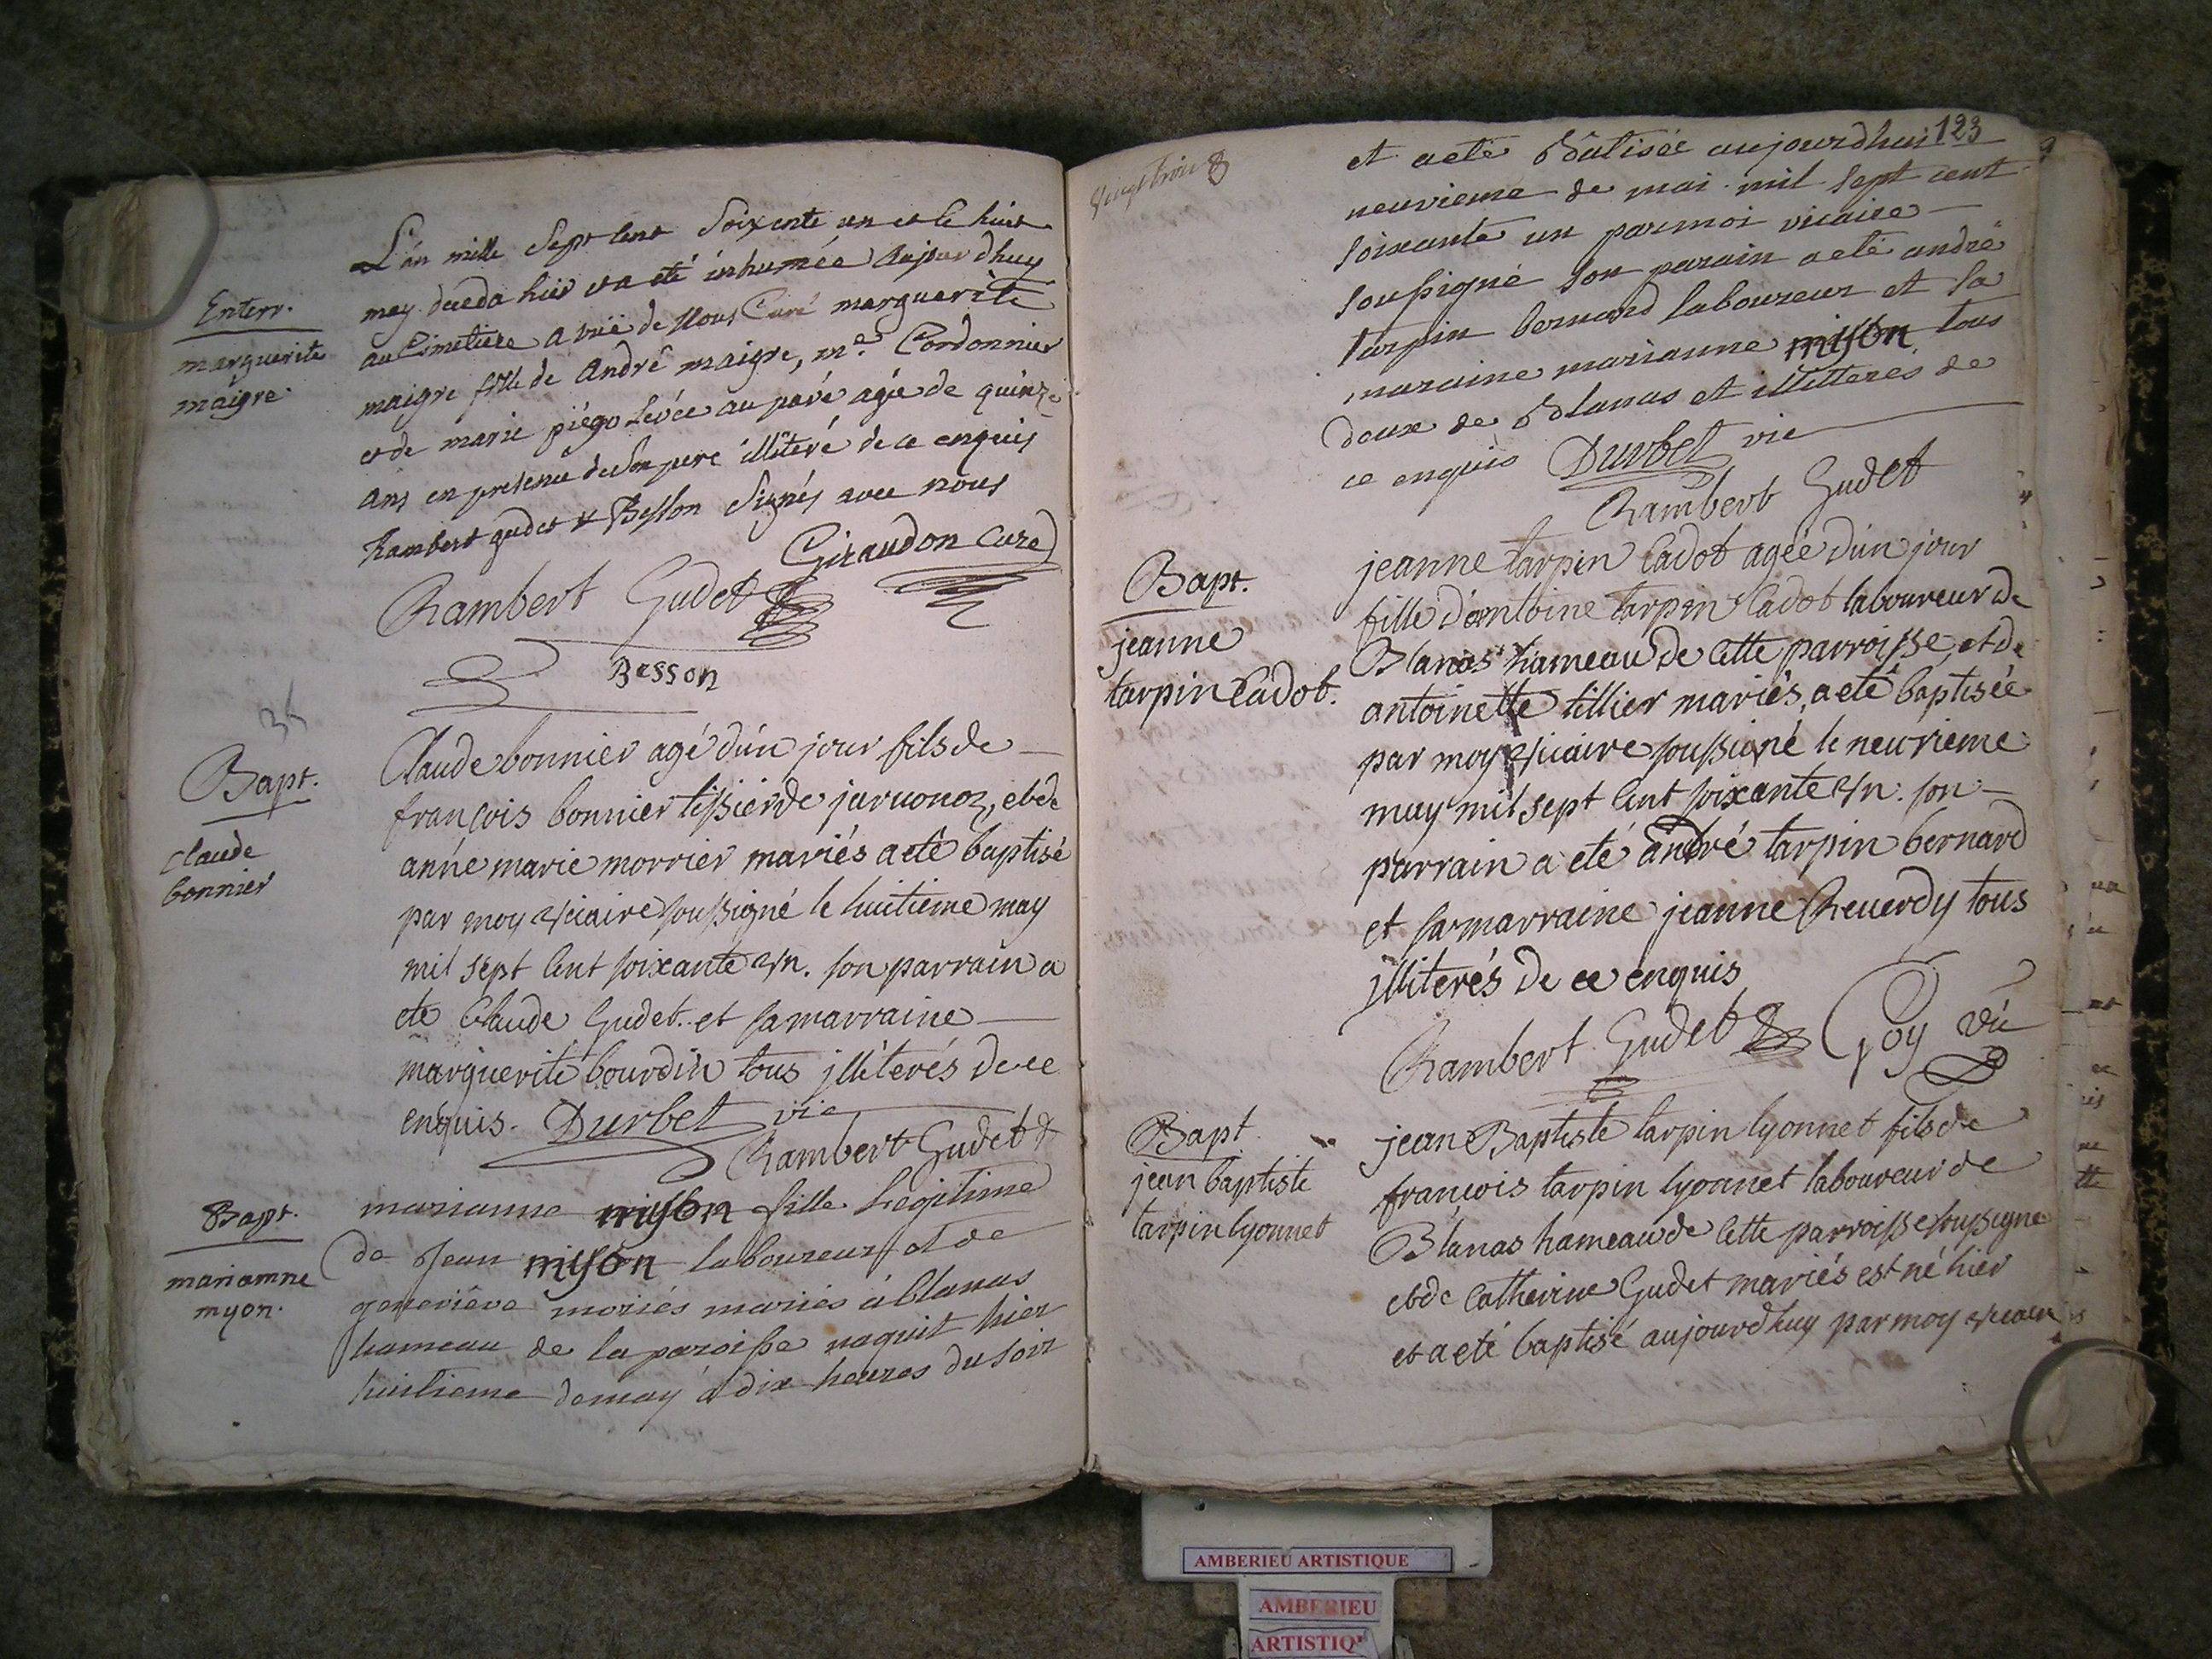 Enterr.
marguerite
maigre.
L'an mille Sept Cent Soixente un et le huit
may deceda hier et a eté inhumée Aujourdhuy
au Cimetiere a vüe de Nous Curé marguerite
maigre fille de André maigre, me. Cordonnier
et de marie piégo Levée au pavé agée de quinze
ans en presence de Son pere illiteré de ce enquis
Rambert gudet & Besson Signés avec nous
Giraudon Curé
Rambert Gudet
Besson
Bapt.
Claude
bonnier
Claude bonnier agé d'ún jour fils de
françois bonnier tissier de juruonoz, et de
anne marie morrier mariés a eté baptisé
par moy vicaire soussigné le huitieme may
mil sept Cent soixante vn. son parrain a
eté Claude Gudet. et sa marraine
marguerite bourdin tous jlliterés de ce
enquis. Durbet vic
Rambert Gudet
Bapt.
marianne
myon.
marianne miyon fille Legitime
de Jean miyon laboureur et de
geneviêve moriés mariés à blanas
hameau de la paroisse naquit hier
huitieme de may à dix heures du soir
123
vingt trois
et a eté bâtisée aujourdhui
neuvieme de mai mil sept cent
soixante un par moi vicaire
soussigné son parain a eté andré
tarpin bernard laboureur et sa
maraine marianne miyon tous
deux de Blanas et illitteres de
ce enquis Durbet vic
Rambert Gudet
Bapt.
jeanne
tarpin Cadot.
jeanne tarpin Cadot agée d'ún jour
fille d'antoine tarpin Cadot laboureur de
Blanas hameau de Cette parroisse, et de
antoinette tillier mariés, a eté baptisée
par moy vicaire soussigné le neuvieme
may mil sept Cent soixante vn. son
parrain a eté andré tarpin bernard
et sa marraine jeanne Reuerdy tous
jlliterés de ce enquis
Rambert Gudet Goy vic
Bapt
jean baptiste
tarpin lyonnet
jean Baptiste tarpin lyonnet fils de
françois tarpin lyonnet laboureur de
Blanas hameau de Cette parroisse soussigné
et de Catherine Gudet mariés est né hier
et a eté baptisé aujourdhuy par moy vicaire
AMBERIEU ARTISTIQUE
AMBERIEU
ARTISTIQ